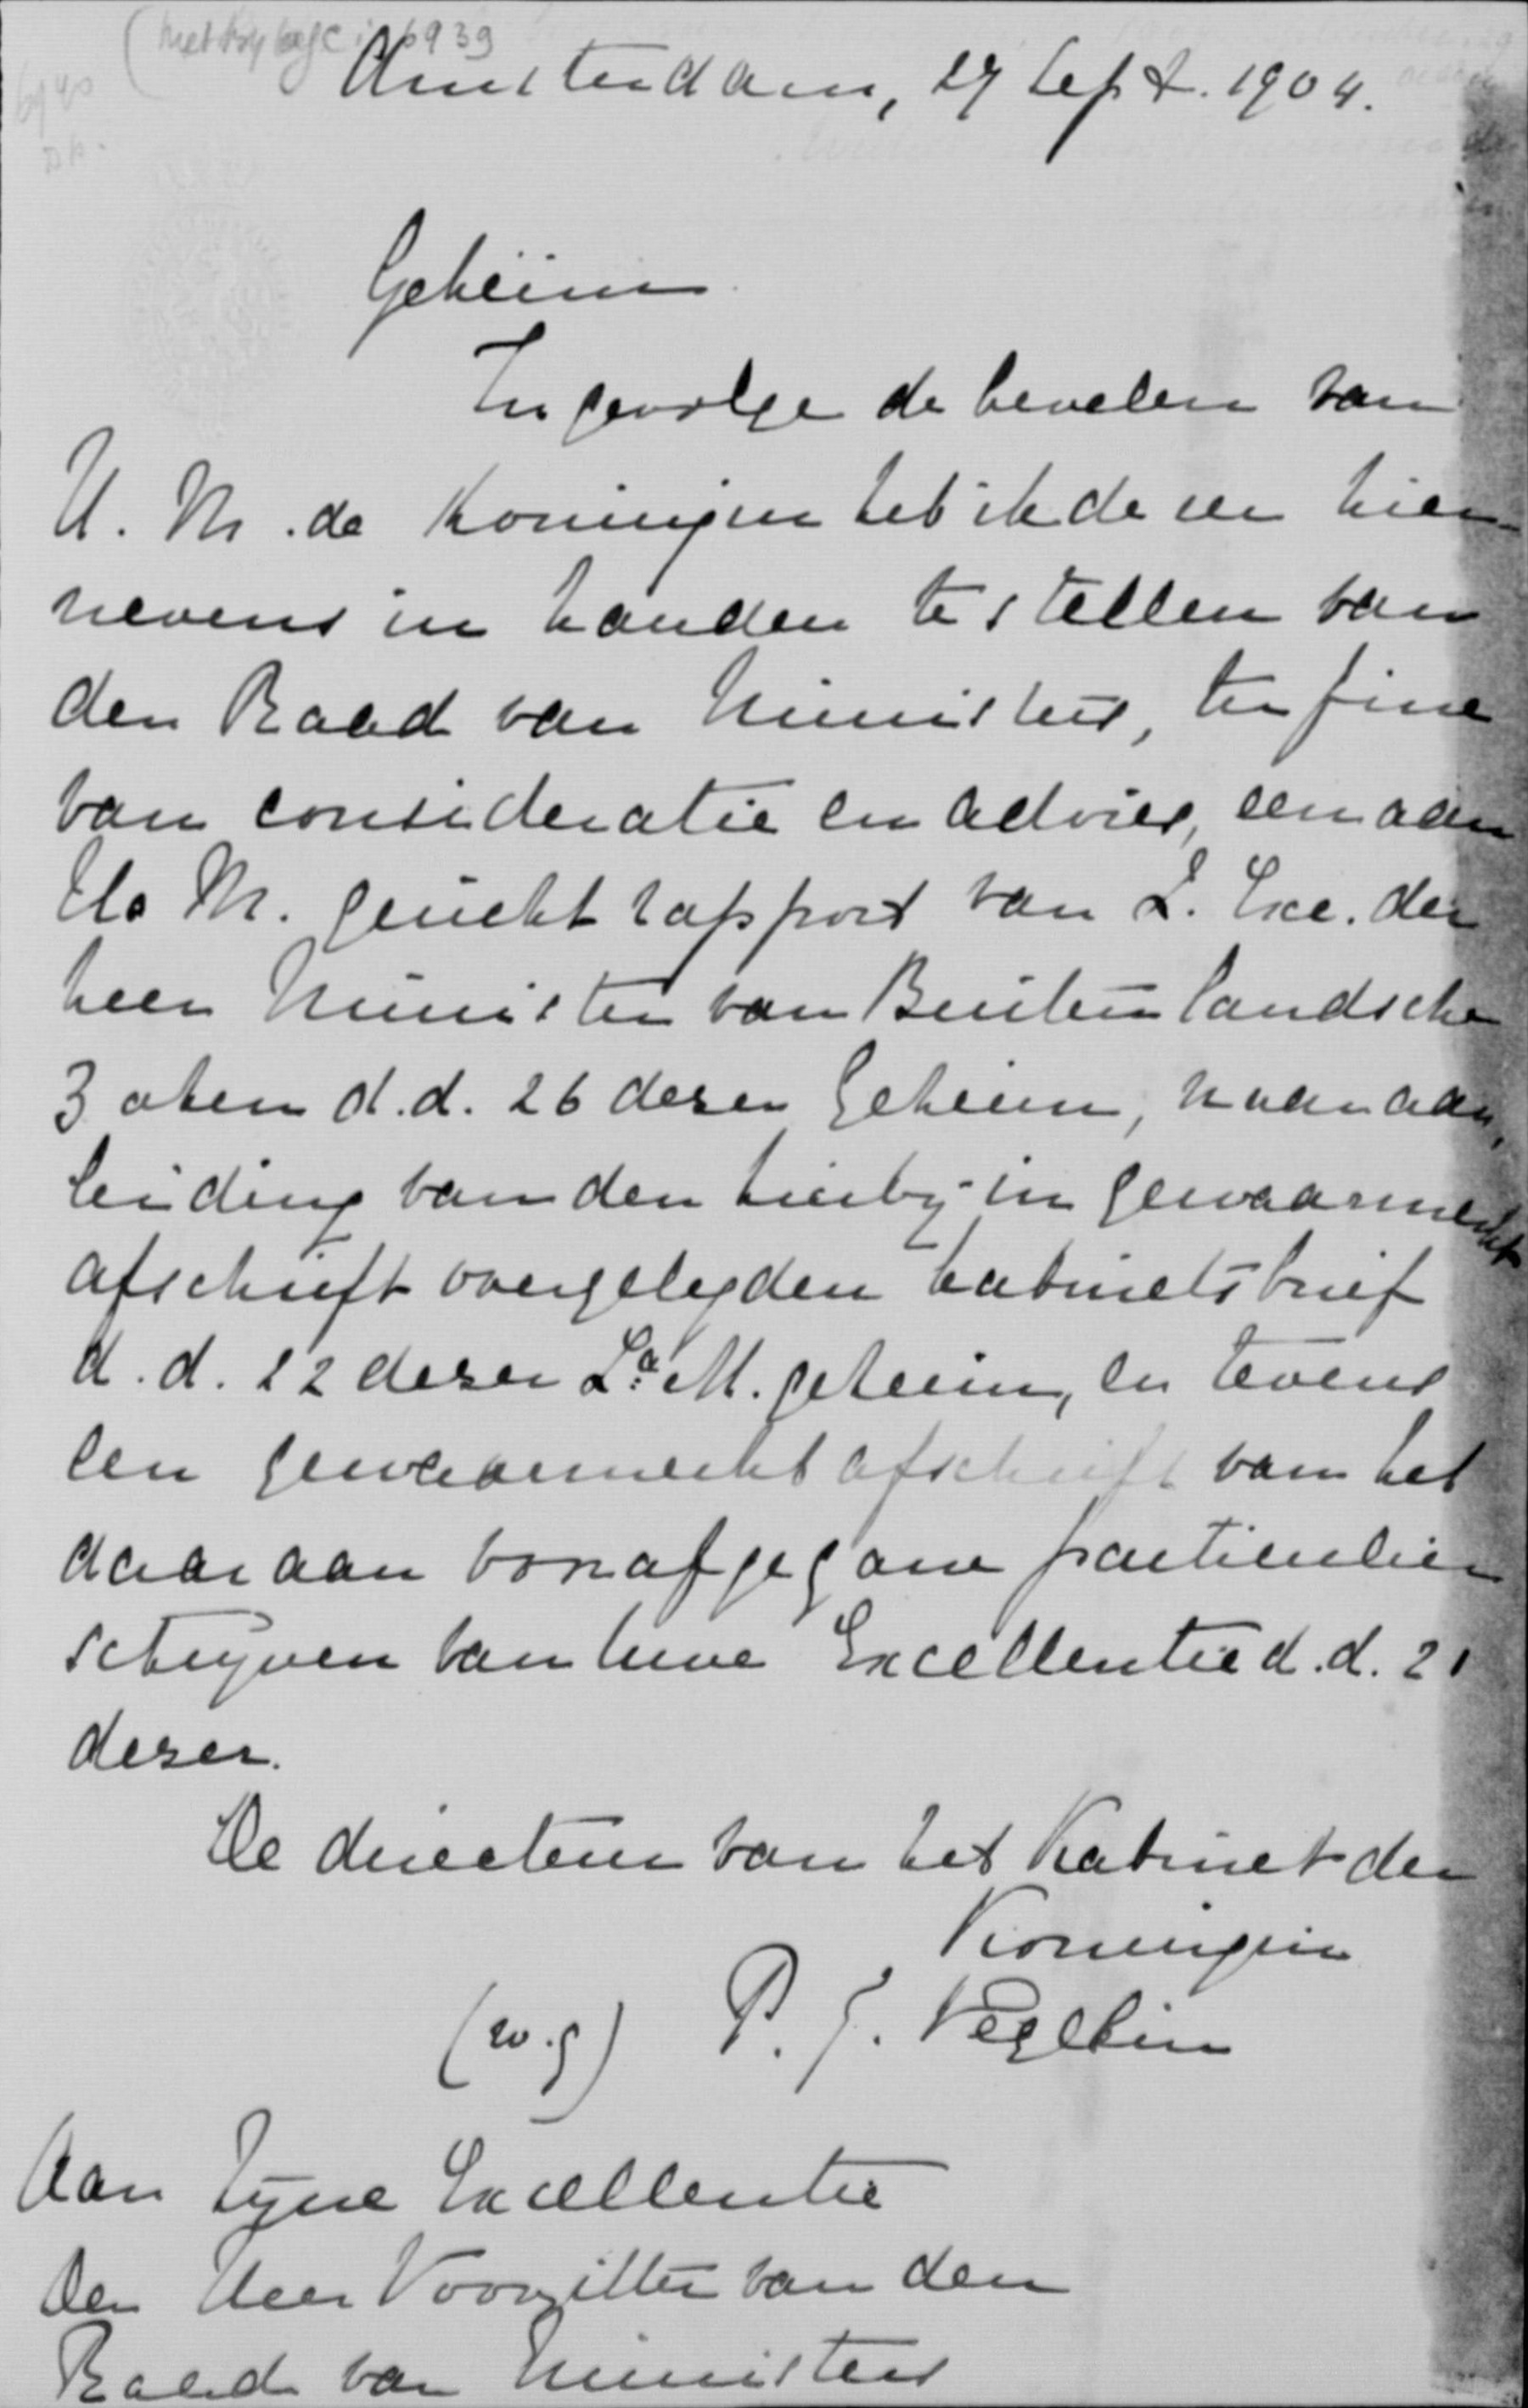 (met bylage in 6939
6940
Amsterdam, 27 Sept. 1904.
Geheim
Ingevolge de bevelen van
H. M. de Koningin heb ik de eer hier-
nevens in handen te stellen van
den Raad van Ministers, ten fine
van consideratie en advies, een aan
Hr M. gericht rapport van Z. Exc. den
heer Minister van Buitenlandsche
Zaken d.d. 26 dezer Geheim, naar aan,
leiding van den hierby in gewaarmerkt
afschrift overgelegden kabinetsbrief
d.d. 22 dezer La. M. geheim, en tevens
een gewaarmerkt afschrift van het
daaraan voorafgegane particulier
schryven van Uwe Excellentie d.d. 21
dezer.
De directeur van het Kabinet der
Koningin
(w.g) P. J. Vegelin
Aan Zyne Excellentie
den Heer Voorzitter van den
Raad van Ministers